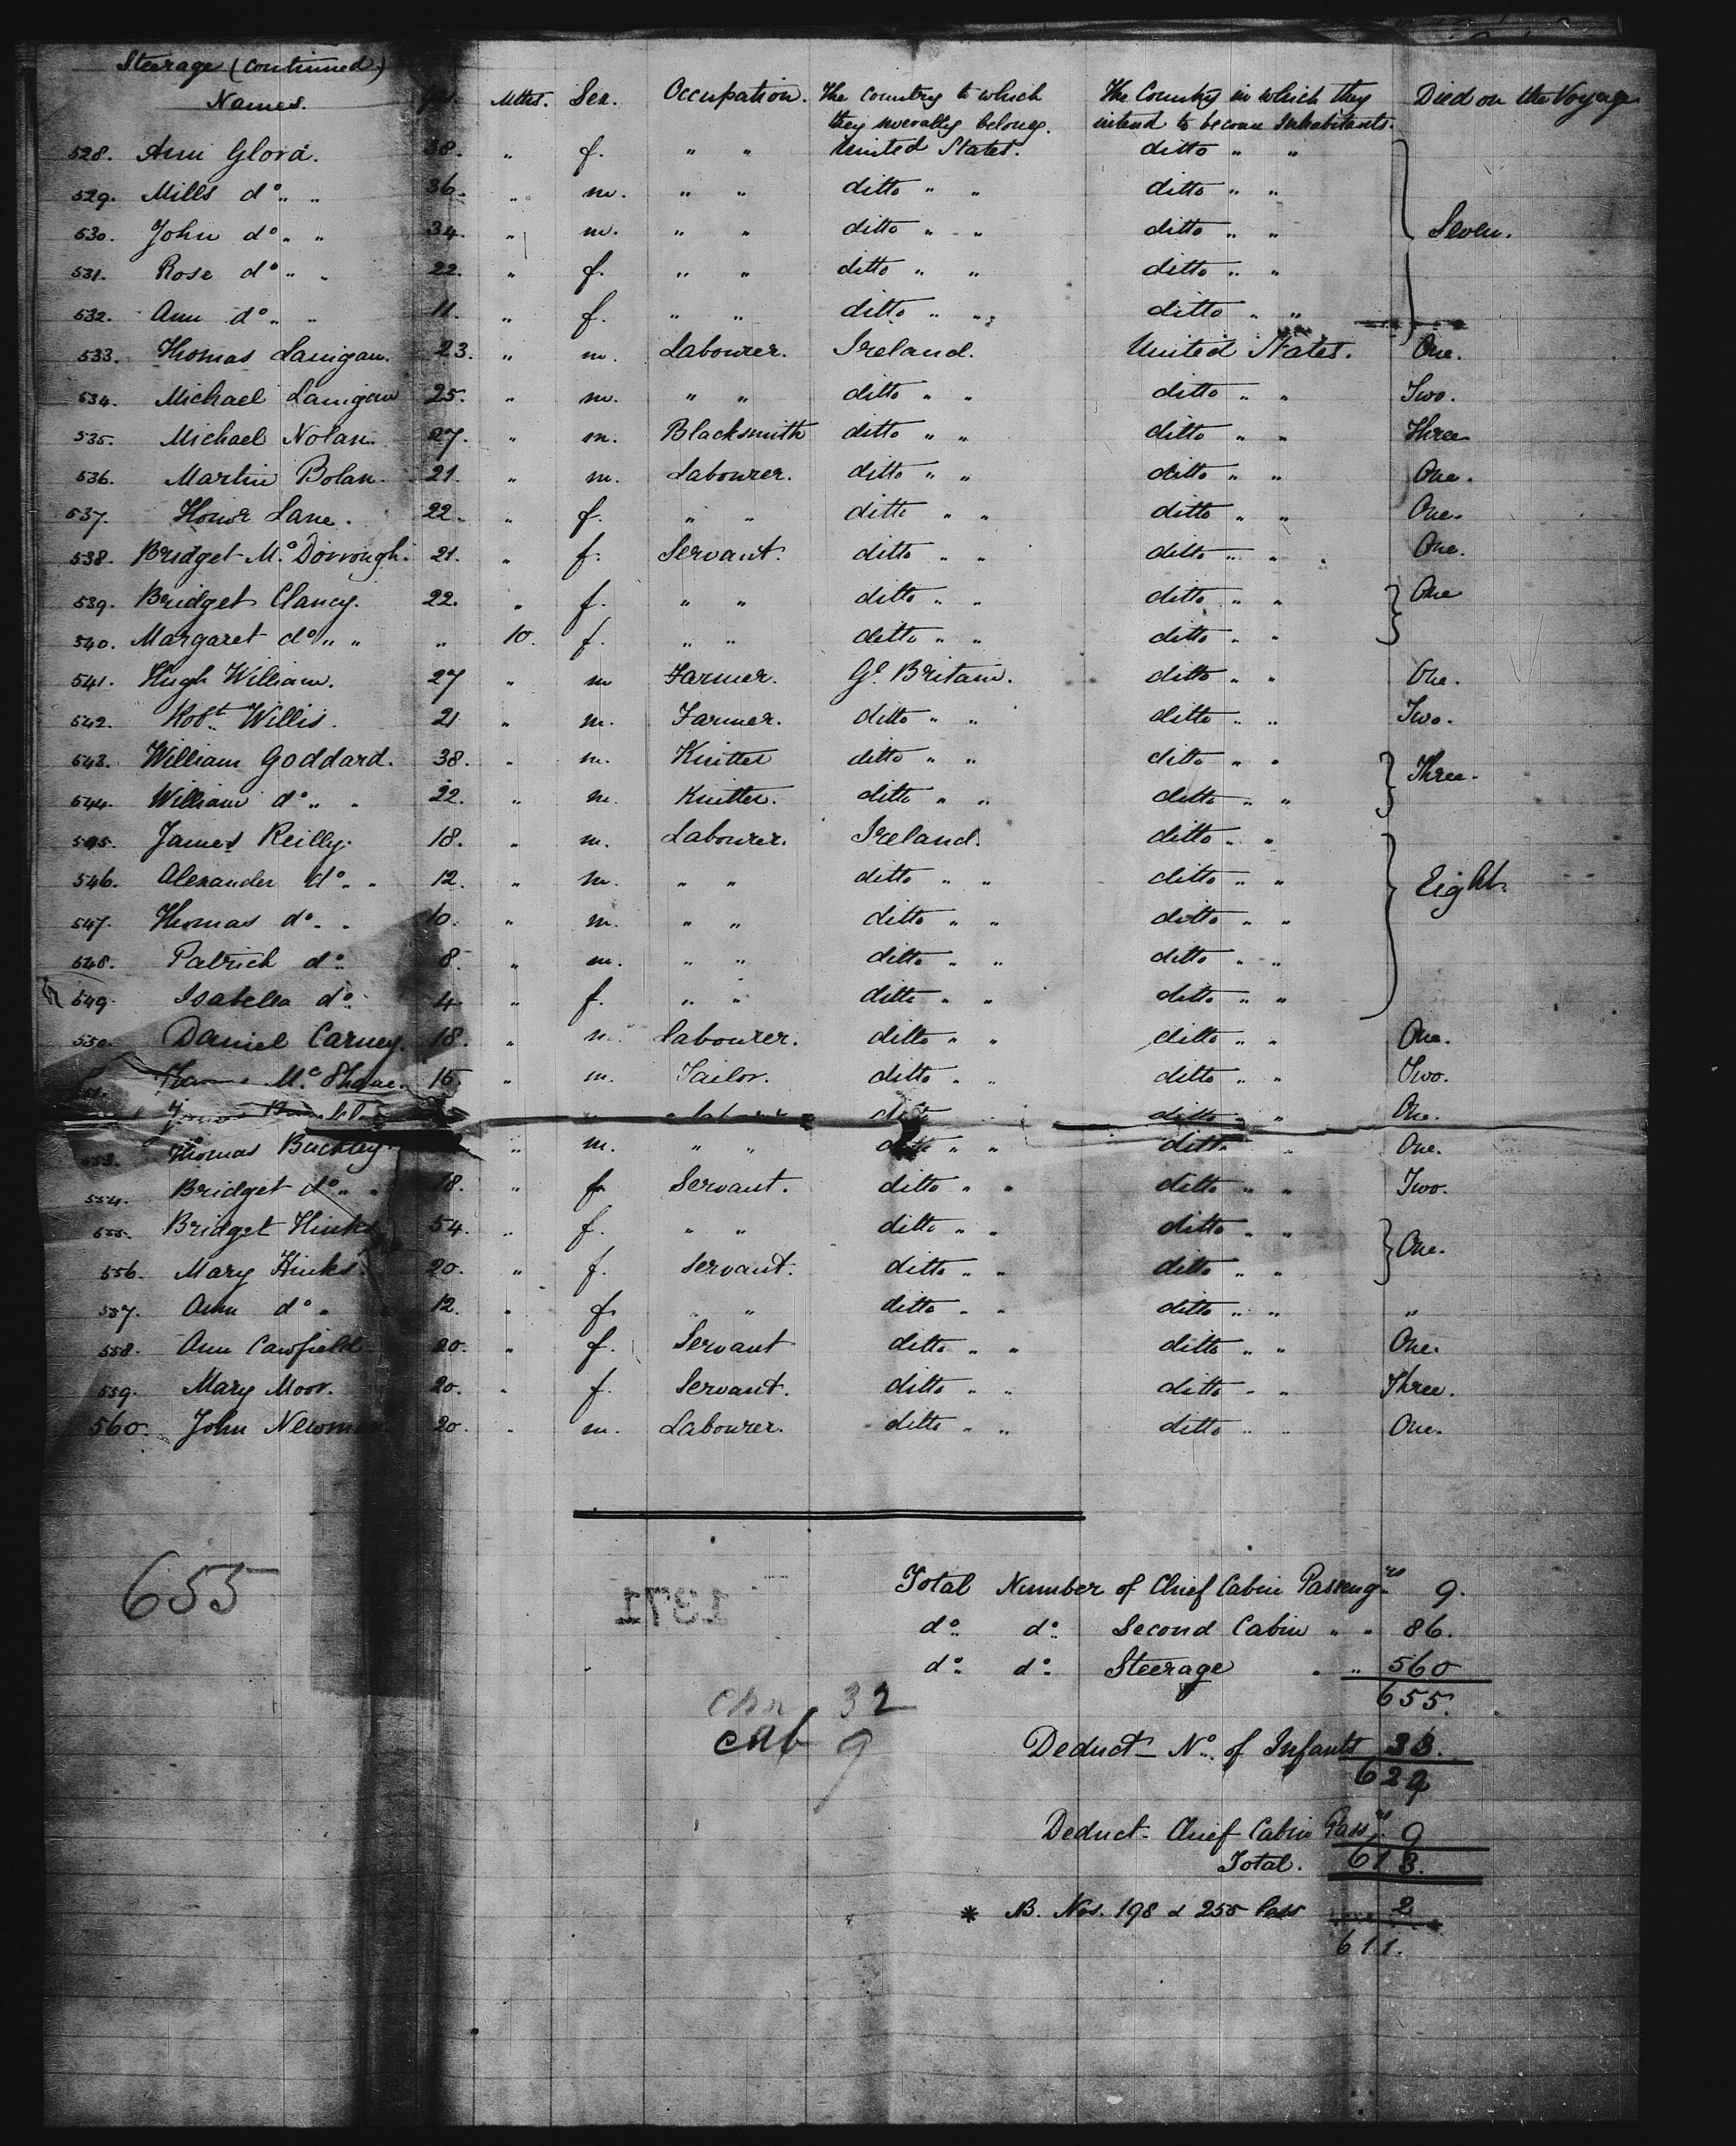 Steerage (Continued)
Names. Mths. Sex. Occupation. The Country to which they severally belong. The Country in which they intend to become Inhabitants. Died on the Voyage
528. Ann Glord. 38. " f. " " United States. ditto " "
529. Mills do " " 36. " m. " " ditto " " ditto " "
530. John do " " 34. " m. " " ditto " " ditto " " Seven.
531. Rose do " " 22. " f. " " ditto " " ditto " "
532. Ann do " " 11. " f. " " ditto " " ditto " "
533. Thomas Lanigan. 23. " m. Labourer. Ireland. United States. One.
534. Michael Lanigan 25. " m. " " ditto " " ditto " " Two.
535. Michael Nolan. 27. " m. Blacksmith ditto " " ditto " " Three
536. Martin Bolan. 21. " m. Labourer. ditto " " ditto " " One.
537. Honor Lane. 22. " f. " " ditto " " ditto " " One.
538. Bridget Mc Dorrough. 21. " f. Servant. ditto " " ditto " " One.
539. Bridget Clancy. 22. " f. " " ditto " " ditto " " One
540. Margaret do " " " 10. f. " " ditto " " ditto " "
541. Hugh William. 27 " m Farmer. Gt Britain. ditto " " One.
542. Robt Willis. 21 " m. Farmer. ditto " " ditto " " Two.
543. William Goddard. 38. " m. Knitter ditto " " ditto " " Three.
544. William do " " 22. " m. Knitter. ditto " " ditto " "
545. James Reilly. 18. " m. Labourer. Ireland. ditto " "
546. Alexander do " " 12. " m. " " ditto " " ditto " " Eight.
547. Thomas do " " 10. " m. " " ditto " " ditto " "
548. Patrick do 8. " m. " " ditto " " ditto " "
549. Isabella do 4 " f. " " ditto " " ditto " "
550. Daniel Carney. 18. " m. Labourer. ditto " " ditto " " One.
Mc Shane. 15. " m. Tailor. ditto " " ditto " " Two.
ditto ditto " " One.
553. Thomas Buckley " m. " " ditto " " ditto " One.
554. Bridget do " " 18. " f. Servant. ditto " " ditto " " Two.
555. Bridget Hinks 54. " f. " " ditto " " ditto " " One.
556. Mary Hinks 20. " f. Servant. ditto " " ditto " "
557. Ann do " 12. " f. " ditto " " ditto " " "
558. Ann Cawfield 20. " f. Servant ditto " " ditto " " One.
559. Mary Moor. 20. " f. Servant. ditto " " ditto " " Three.
560. John Newm 20. " m. Labourer. ditto " " ditto " " One.
655
1371
Total Number of Chief Cabin Passengrs 9.
do do Second Cabin " " 86.
do do Steerage " " 560
655.
32
Cab 9
Deduct No. of Infants 33.
622
Deduct Chief Cabin Passrs 9
Total. 613.
* NB. Nos. 198 & 255 less 2
611.